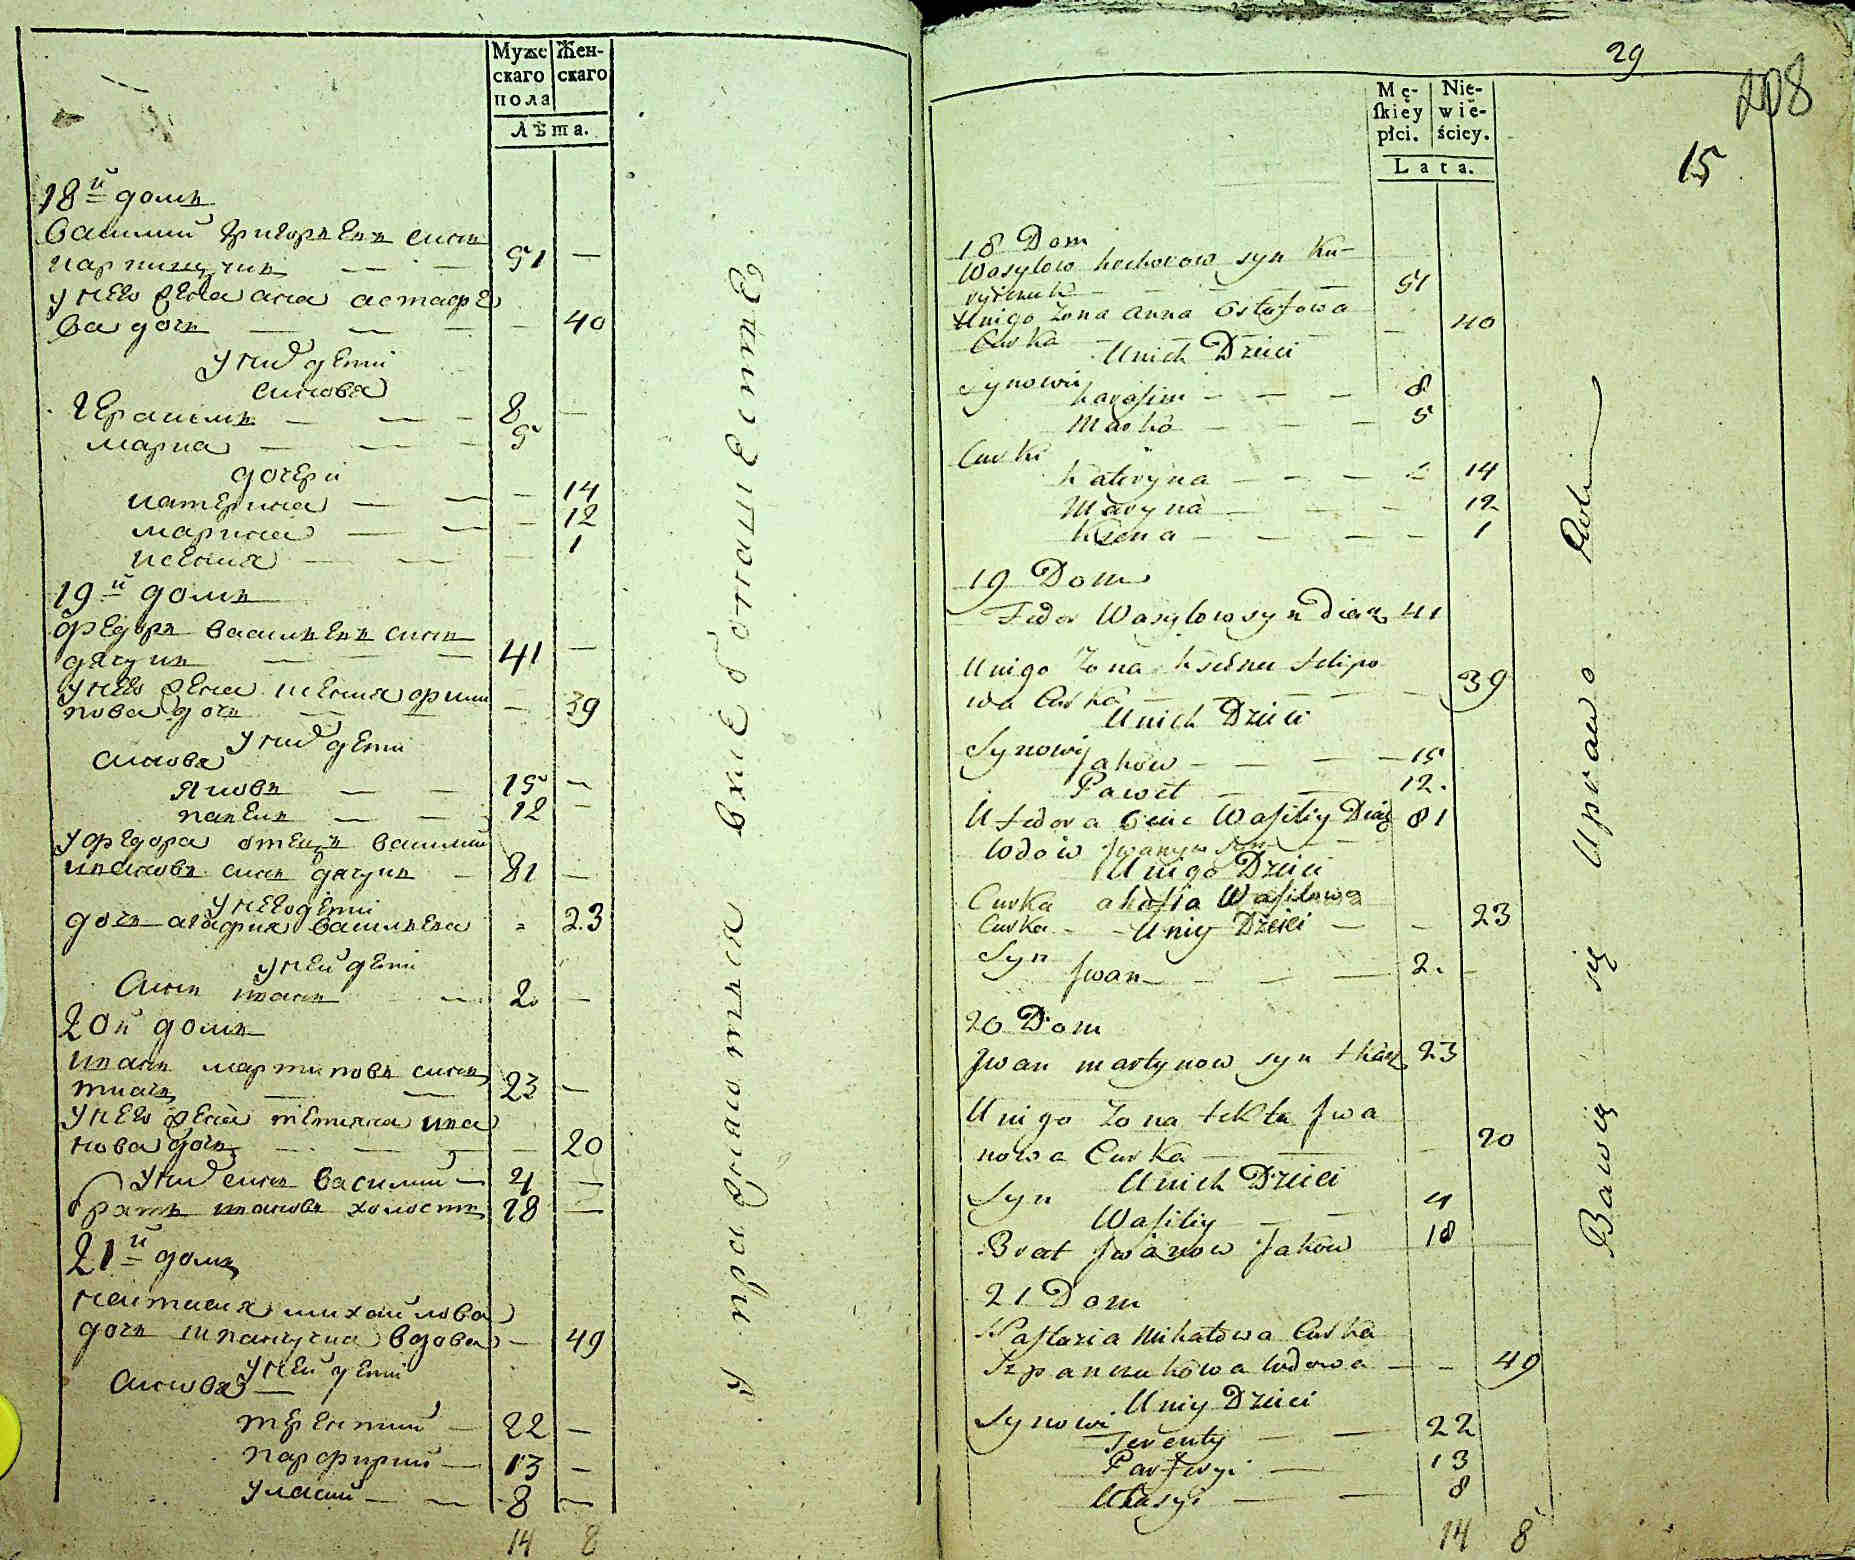 Муже
скаго
пола
Жен-
скаго
Лѣта.
18й домъ
василий григорьевъ синъ
51 —
у него жена ана астафе
ва дочь — — — 40
у них дети
синовя
герасимъ — — — 8 —
марка — — — 5
дочери
катерина — — — 14
марина — — 12
ксения — — — 1
19й домъ
федоръ васильевъ синъ
дячукъ — — — 41 —
у него жена ксения филип
пова дочь — — — 39
у них дети
синовя
яковъ — — 15 —
павелъ — — — 12 —
у федора отецъ василий
ивановъ синъ дячукъ — 81 —
у него дети
дочь агафия васильева 23
у ней дети
Синъ иванъ — 2 —
20й домъ
иванъ мартиновъ синъ
ткачъ — — 23 —
у него жена тетияна ива
нова дочь — — — 20
у них синъ василий — 4 —
братъ ивановъ холостъ 28 —
21й домъ
настасия михайлова
дочь шпанчучка вдова — 49
у ней дети
синовя —
терентий — 22 —
парфирий — 13 —
уласий — — 8 —
14 8
29
208
15
Mę-
skiey
płci.
Nie-
wie-
ściey.
Lata.
18 Dom
Wasylow hrehorow syn Ku-
51
Unigo żona anna Ostafowa
Curka — — — 40
Unich Dzieci
Synowie
harasim — — — 8
Marko — — — 5
Curki
Kateryna — — — 14
Maryna — — — 12
Ksena — — — — 1
19 Dom
Fedor Wasylow syn Diak 41
Unigo żona ksena filipo
wa Curka — — — — 39
Unich Dzieci
Synowie
Jakow — — — — 15
Paweł — — — 12.
U fedora Oiec Wasiliy Diak 81
Wdow Jwanow syn — —
Unigo Dzieci
Curka ahafia Wasilowa
Curka — — — — 23
Uniy Dzieci
Syn
Jwan — — — 2. —
20 Dom
Jwan martynow syn tkacz 23
Unigo żona tekla Jwa
nowa Curka — — — 20
Unich Dzieci
Syn
Wasiliy — — 4
Brat Jwanow Jakow 18
21 Dom
Nastazia Mihałowa Curka
Szpanczukowa Wdowa — — 49
Uniy Dzieci
Synowie
Terenty — — 22
Parfiryi — 13
Ułasyi — — 8
14 8
Bawią się Uprawo Roli